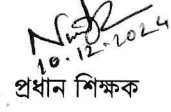 10.12.2024
প্রধান শিক্ষক